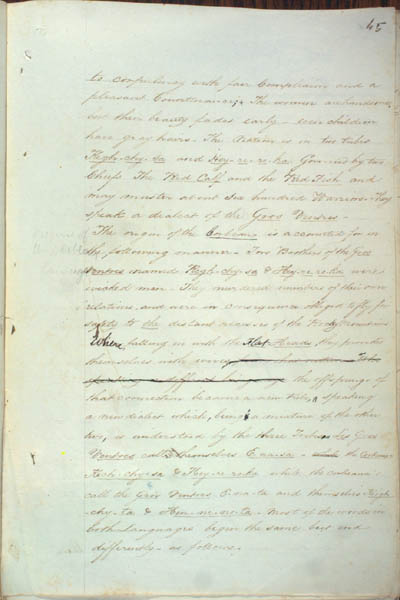 45
to corpulency with fair Complexions and a
pleasant Countenance; The women are handsome
but their beauty fades early - even children
have gray hairs. The Nation is in two tribes
Kegh-chy-sa and Hey-re-re-ka Governed by two
Chiefs The Red Calf and the Red Fish and
may muster about Six hundred Warriors. They
speak a dialect of the Gros Ventres.
The origin of the is accounted for in
the following manner - Two Brothers of the Gros
Ventres named Kegh-chy-sa & Hey-re-re-ka were
wicked men. They murdered numbers of their own
relations, and were in consequence obliged to fly for
safety to the distant recesses of the Rocky mountains
Where, falling in with the Flat Heads, they provided
themselves with
the offspring of
that connection became a new tribe, speaking
a new dialect which, being a mixture of the other
two, is understood by the three Tribes. The Gros
Ventres call themselves the
& Hey-re-reka while the
call the Gros Ventres and themselves Kegh-
chy-ta & most of the words in
both languages begin the same but end
differently - as follows.